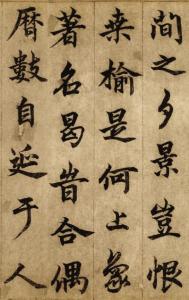 間之夕景豈恨
桒榆是何上象
著名曷昔合偶
曆數自延于人